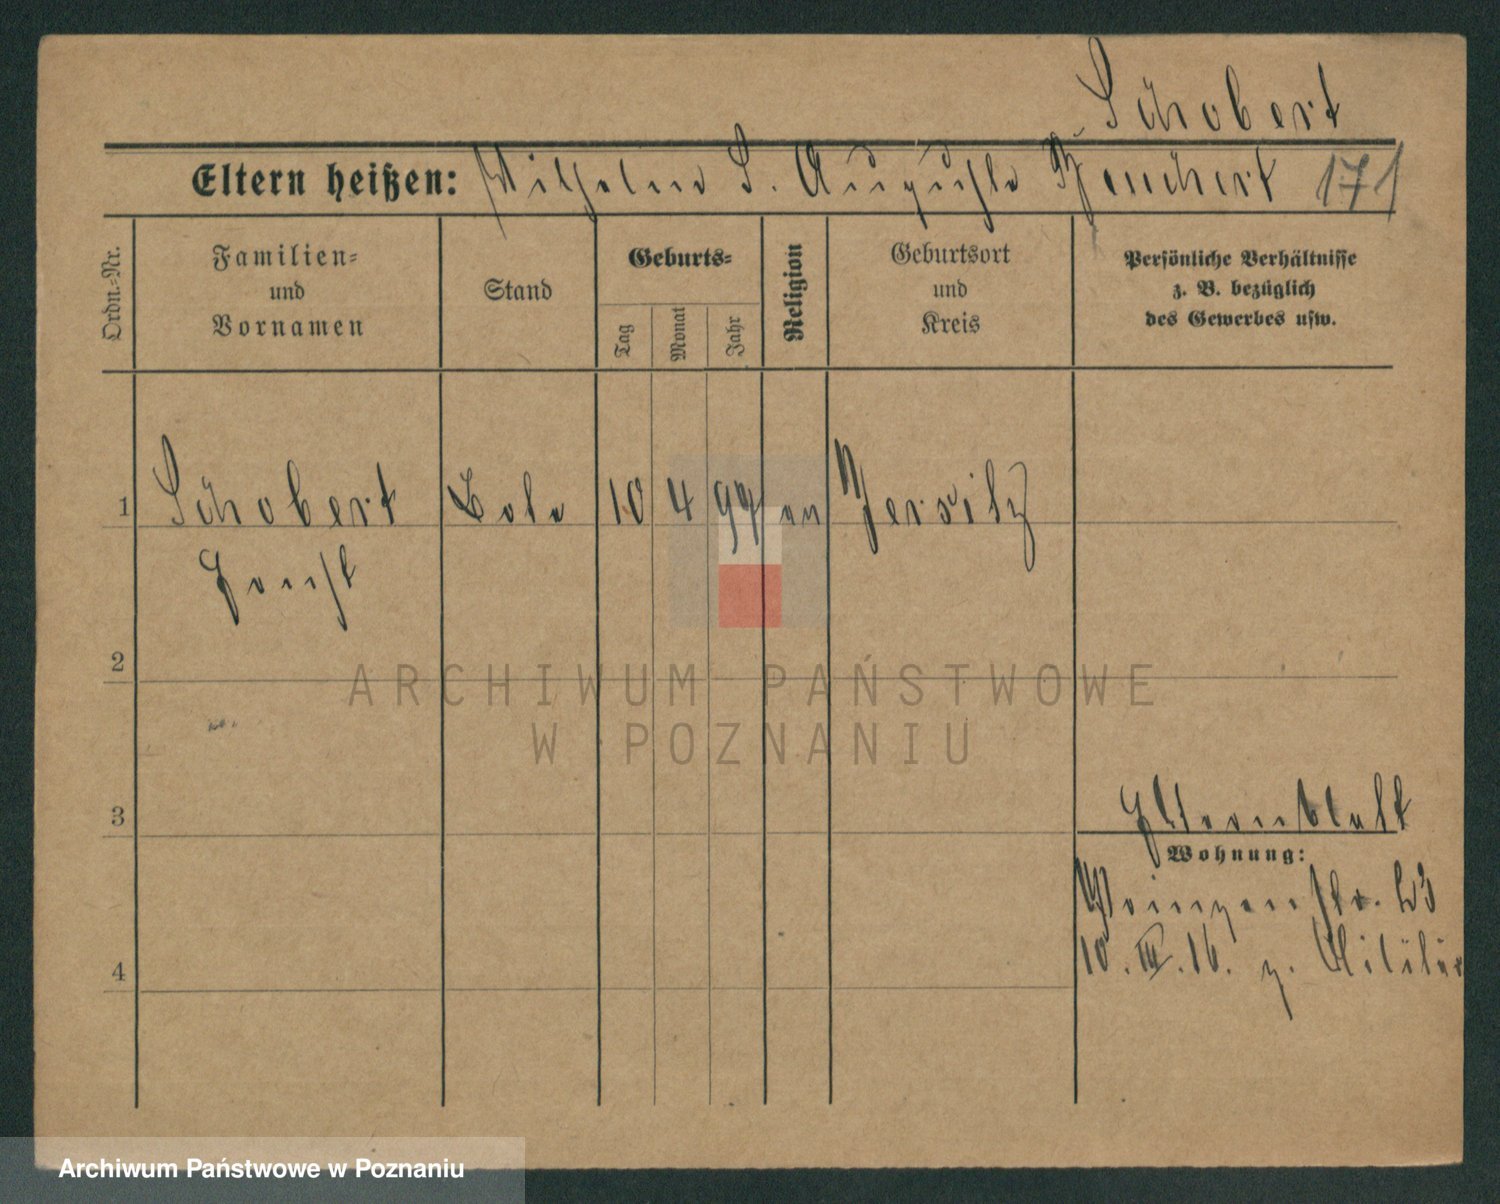 Schobert
Eltern heißen: Wilhelm S. Auguste Henchert 171
Ordn.-Nr.
Familien-
und
Vornamen
Stand
Geburts-
Tag
Monat
Jahr
Religion
Geburtsort
und
Kreis
Persönliche Verhältnisse
z. B. bezüglich
des Gewerbes usw.
1 Schobert Bote 10 4 99 ev Jersitz
Ernst
2
ARCHIWUM PAŃSTWOWE
W POZNANIU
3
Elternblatt
Wohnung:
str. 23
4
10. III. 16. z. Militär
Archiwum Państwowe w Poznaniu